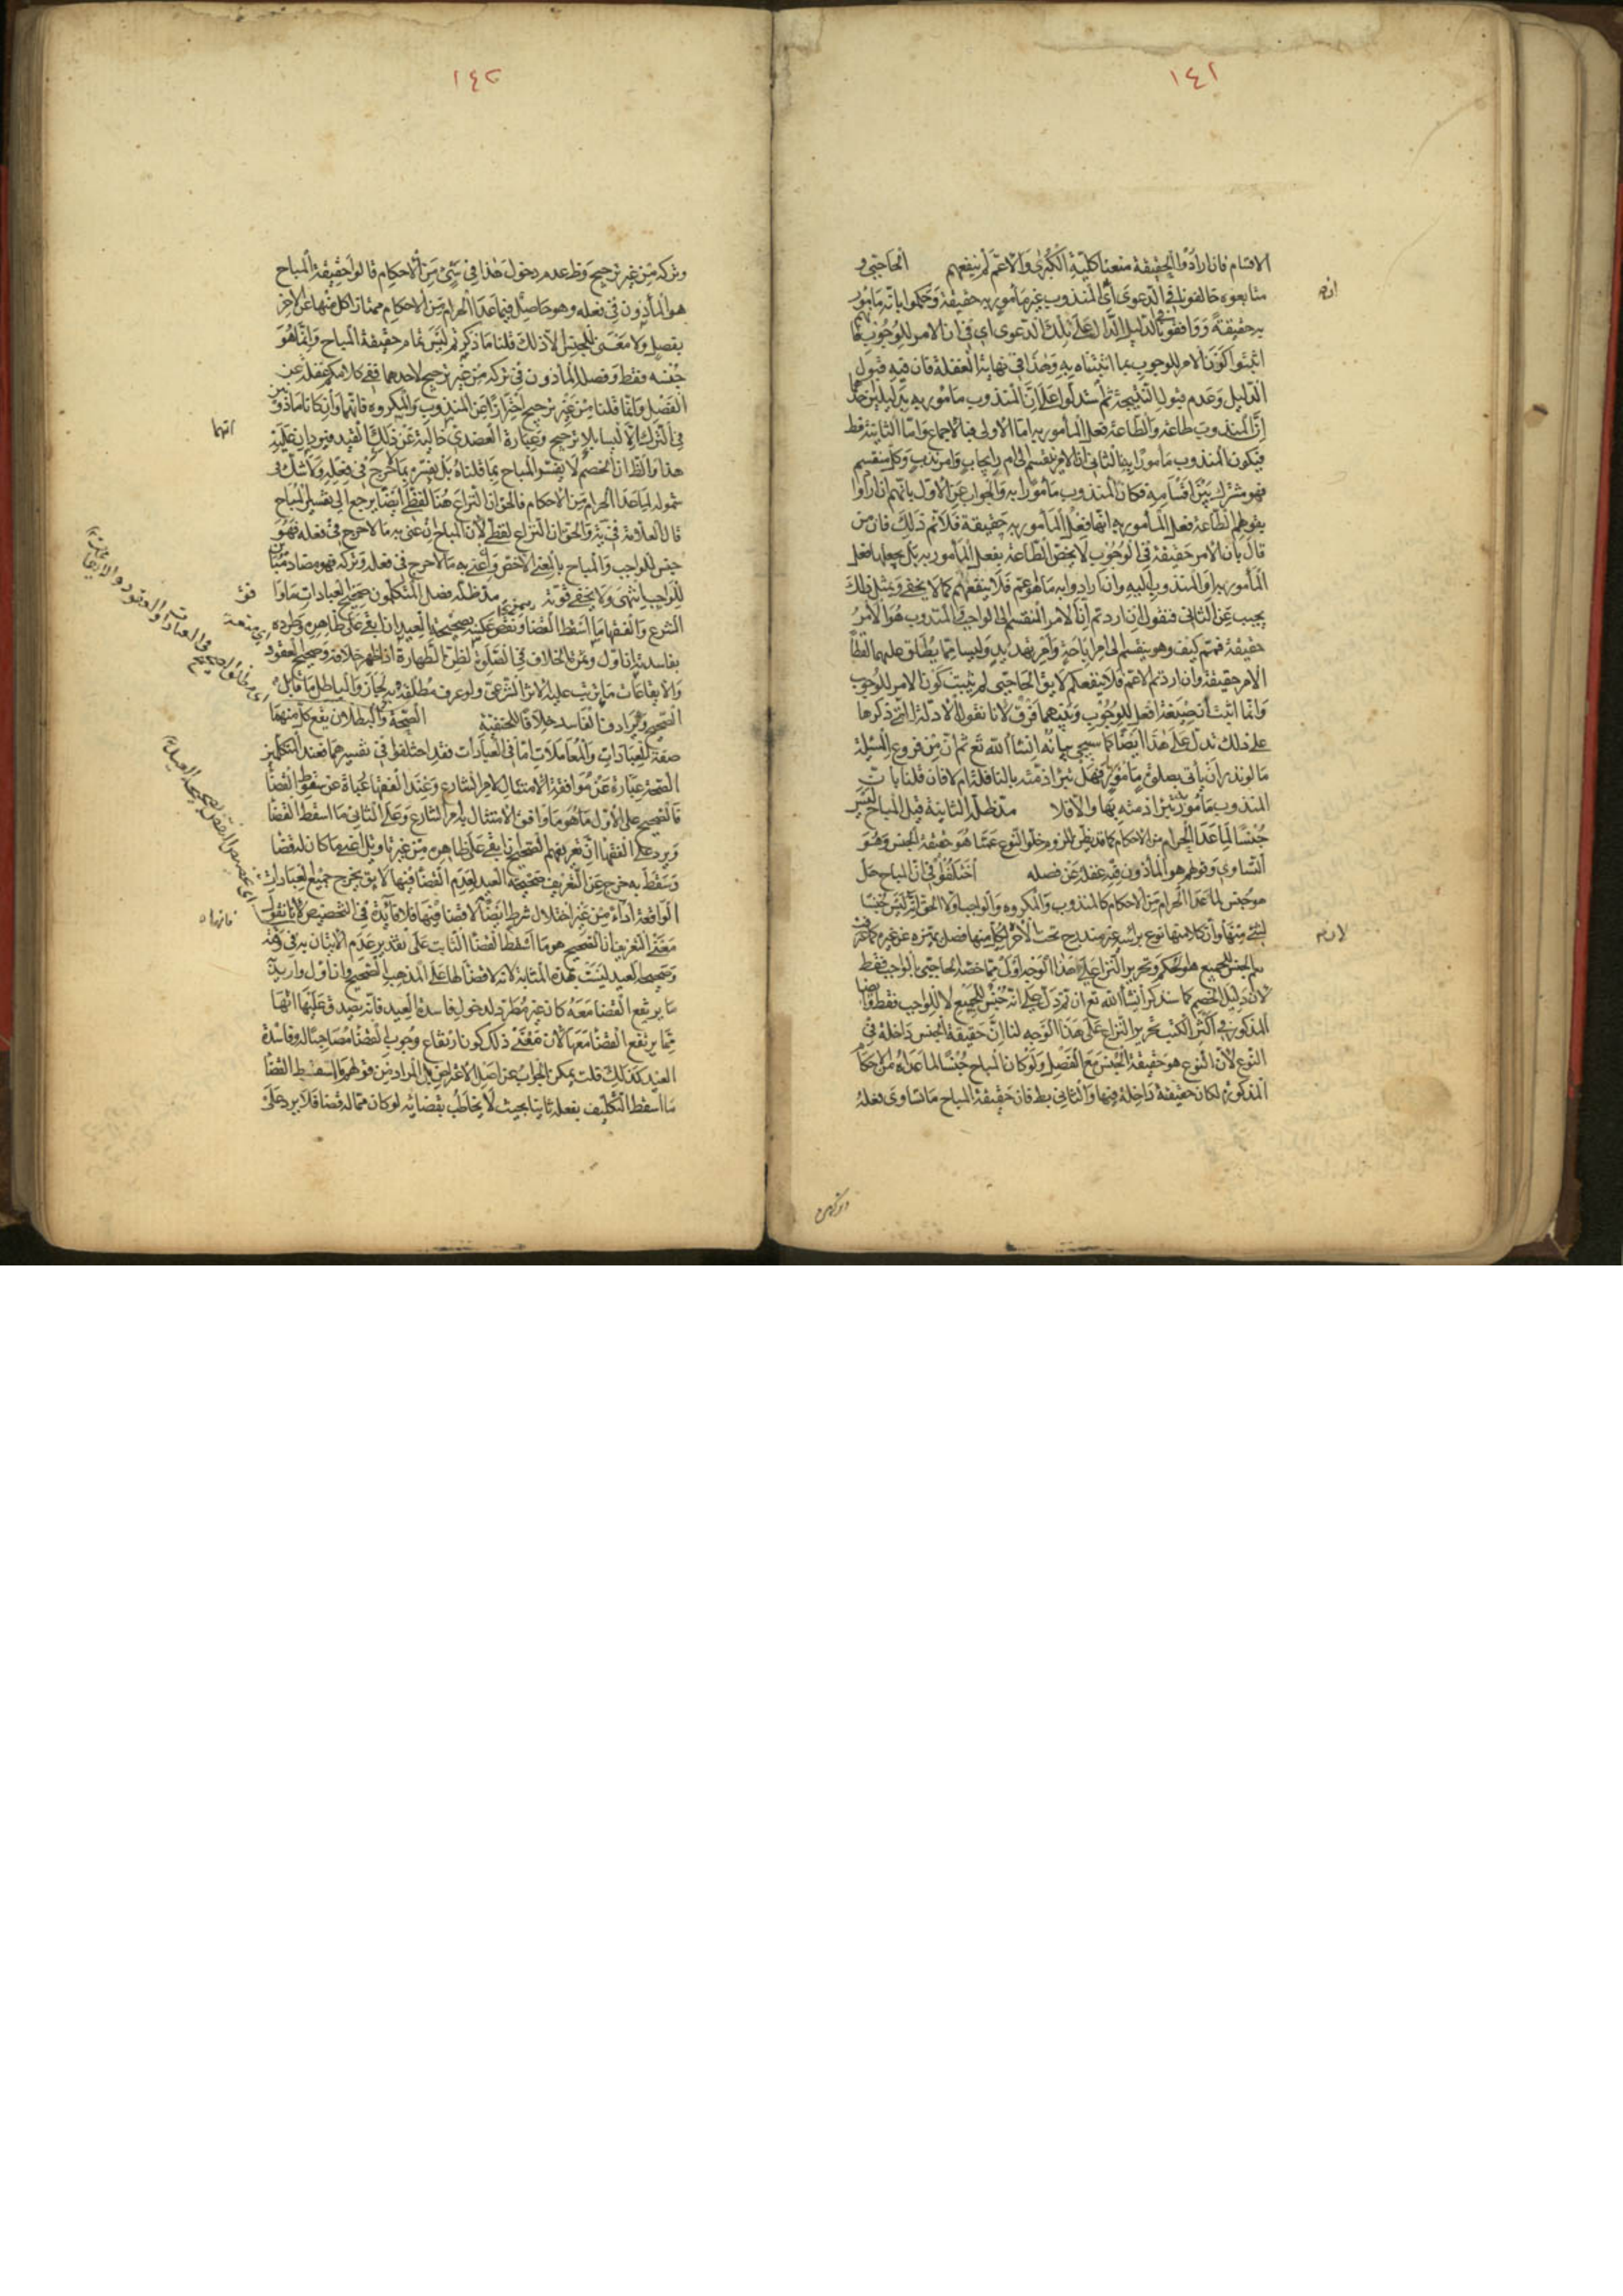 ١٤١
الاقسام فان ارادوا الحقيقة منعنا كلية الكبرى والاعم لم ينفعهم الحاجبي و
متابعوه خالفونا في الدعوى اي المندوب غير مأمور به حقيقة وحكموا بانه مأمور
به حقيقة ووافقونا في الدليل الدال على تلك الدعوى اي في ان الامر للوجوب
اثبتوا كون الامر للوجوب بما اثبتناه به وهذا في نهاية الغفلة فان فيه قبول
الدليل وعدم قبول النتيجة ثم استدلوا على ان المندوب مأمور به بدليلين
ان المندوب طاعة والطاعة فعل المأمور به اما الاولى فبالاجماع واما الثانية فظ
فيكون المندوب مأمورا به الثاني ان الامر ينقسم الى امر ايجاب وامر ندب وكل منقسم
فهو مشترك بين اقسامه فكان المندوب مأمورا به والجواب عن الاول بانهم ان ارادوا
بقولهم الطاعة فعل المأمور به انها فعل المأمور به حقيقة فلانم ذلك فان من
قال بان الامر حقيقة في الوجوب لا يخص الطاعة بفعل المأمور به بل يجعلها فعل
المأمور به او المندوب اليه وان ارادوا به ما هو اعم فلا ينفعهم كما لا يخفى وبمثل ذلك
يجيب عن الثاني فنقول ان اردتم ان الامر المنقسم الى الواجب والمندوب هو الامر
حقيقة فهو مم كيف وهو ينقسم الى امر اباحة وامر تهديد وليسا مما يطلق عليهما لفظ
الامر حقيقة وان اردتم الاعم فلا ينفعكم لا يق الحاجبي لم يثبت كون الامر للوجوب
وانما اثبت ان صيغة افعل للوجوب وبينهما فرق لانا نقول الادلة التي ذكرها
على ذلك تدل على هذا ايضا كما سيجيء بيانه انشاء الله تع ثم ان من فروع المسئلة
ما لو نذر ان يأتي بصلوة مأمور بها فهل تبرأ ذمته بالنافلة ام لا فان قلنا بان
المندوب مأمور به تبرأ ذمته بها والا فلا مد ظله الثانية قيل المباح ليس
جنسا لما عدا الحرام من الاحكام كما قد يظن للزوم خلو النوع عما هو حقيقة الجنس وهو
التساوي وقولهم هو المأذون فيه غفلة عن فصله اختلفوا في ان المباح هل
هو جنس لما عدا الحرام من الاحكام كالمندوب والمكروه والواجب او لا الحق انه ليس جنسا
لشيء منها وان كلا منها نوع برأسه غير مندرج تحت الآخر
الجنس للجميع هو وتحرير النزاع على هذا الوجه اولى مما خصه الحاجبي بالواجب فقط
لان دليل الخصم كما سنذكر انشاء الله تع ان تم دل على انه جنس للجميع لا للواجب فقط
المذكور في اكثر الكتب تحرير النزاع على هذا الوجه لنا ان حقيقة الجنس داخلة في
النوع لان النوع هو حقيقة الجنس مع الفصل ولو كان المباح جنسا لما عداه من الاحكام
المذكورة لكان حقيقة داخلة فيها والثاني بط فان حقيقة المباح ما تساوى فعله
وتركه
١٤٢
وتركه من غير ترجيح وظ عدم دخول هذا في شيء من الاحكام قالوا حقيقة المباح
هو المأذون في فعله وهو حاصل فيما عدا الحرام من الاحكام ممتاز كل منها عن الآخر
بفصل ولا معنى للجنس الا ذلك قلنا ما ذكرتم ليس تمام حقيقة المباح وانما هو
جنسه فقط وفصله المأذون في تركه من غير ترجيح لاحدهما ففي كلامكم غفلة عن
الفصل وانما قلنا من غير ترجيح احترازا عن المندوب والمكروه فانهما وان كانا مأذونين
في الترك الا انهما ليسا بلا ترجيح وعبارة العضدي خالية عن ذلك القيد فيورد ان عليه
هذا والظ ان الخصم لا يفسر المباح بما قلناه بل يفسره بما لا حرج في فعله ولا شك في
شموله لما عدا الحرام من الاحكام فالحق ان النزاع هنا لفظي ايضا يرجع الى تفسير المباح
قال العلامة في يه والحق ان النزاع لفظي لان المباح ان عني به ما لا حرج في فعله فهو
جنس للواجب والمباح بالمعنى الاخص واعني به ما لا حرج في فعله وتركه فهو مضاد مباين
للواجب انتهى ولا يخفى قوته مد ظله فصل المتكلمون صحيح العبادات ما وافق
الشرع والفقهاء ما اسقط القضاء ونقض عكسه بصحيحة العيد ان ابقي على ظاهره وطرده
بفاسدته ان اول وثمرة الخلاف في الصلوة لظن الطهارة اذا ظهر خلافه وصحيح العقود
والايقاعات ما يترتب عليه الاثر الشرعي ولو عرف مطلقه به لجاز والباطل ما قابل
الصحيح ويرادفه الفاسد خلافا للحنفية الصحة والبطلان يقع كل منهما
صفة للعبادات والمعاملات اما في العبادات فقد اختلفوا في تفسيرهما فعند المتكلمين
الصحة عبارة عن موافقة الامتثال لامر الشارع وعند الفقهاء عبارة عن سقوط القضاء
فالصحيح على الاول ما هو ما وافق الامتثال لامر الشارع وعلى الثاني ما اسقط القضاء
ويرد على الفقهاء ان تعريفهم الصحيح ان ابقي على ظاهره من غير تأويل اعني ما كان له قضاء
وسقط به خرج عن التعريف صحيحة العيد لعدم القضاء فيها لا يق يخرج جميع العبادات
الواقعة اداء من غير اختلال شرط ايضا لا قضاء فيها فلا فائدة في التخصيص لانا نقول
معنى التعريف ان الصحيح هو ما اسقط القضاء الثابت على تقدير عدم الاتيان به في وقته
وصحيحة العيد ليست بهذه المثابة لانه لا قضاء لها على المذهب الصحيح وان اول واريد به
ما يرتفع القضاء معه كان غير مطرد لدخول فاسدة العيد فانه يصدق عليها انها
مما يرتفع القضاء معها لان معنى ذلك كون ارتفاع وجوب القضاء مصاحبا له وفاسدة
العيد كذلك قلت يمكن الجواب عن اصل الاعتراض بان المراد من قولهم ما اسقط القضاء
ما اسقط التكليف بفعله ثانيا بحيث لا يخاطب بقضائه لو كان مما له قضاء فلا يرد على
انهما